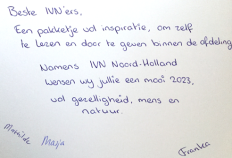 Beste IVN'ers,
Een pakketje vol inspiratie, om zelf
te lezen en door te geven binnen de afdeling
Namens IVN Noord-Holland
wensen wij jullie een mooi 2023,
vol gezelligheid, mens en
natuur.
Mathilde Marja Franka